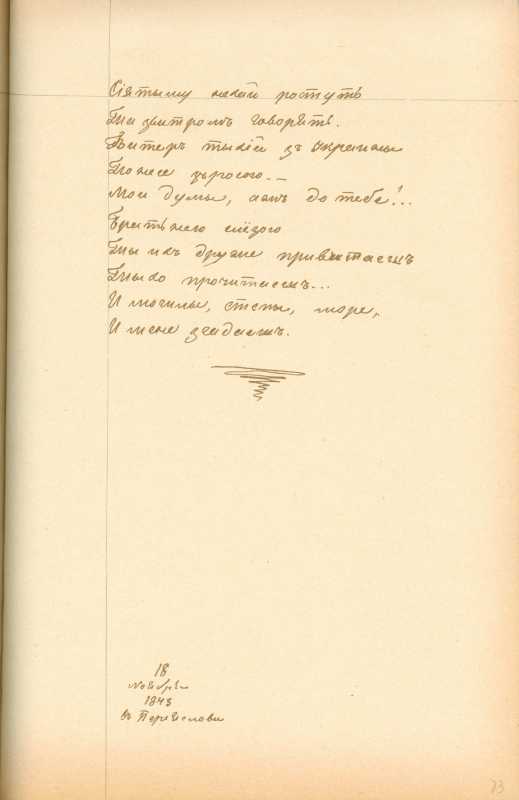 Сіятыму нехай ростуть
Та звитромъ говорять.
Витеръ тыхій зъ Украины
Понесе зъросою..
Мои думы, ажъ до тебе!..
Братнёю слёзою
Ты ихъ друже привитаешъ
Тыхо прочитаешъ...
И могилы, степы, море,
И мене згадаешъ.
18
ноября
1845
въ Переяслави
73